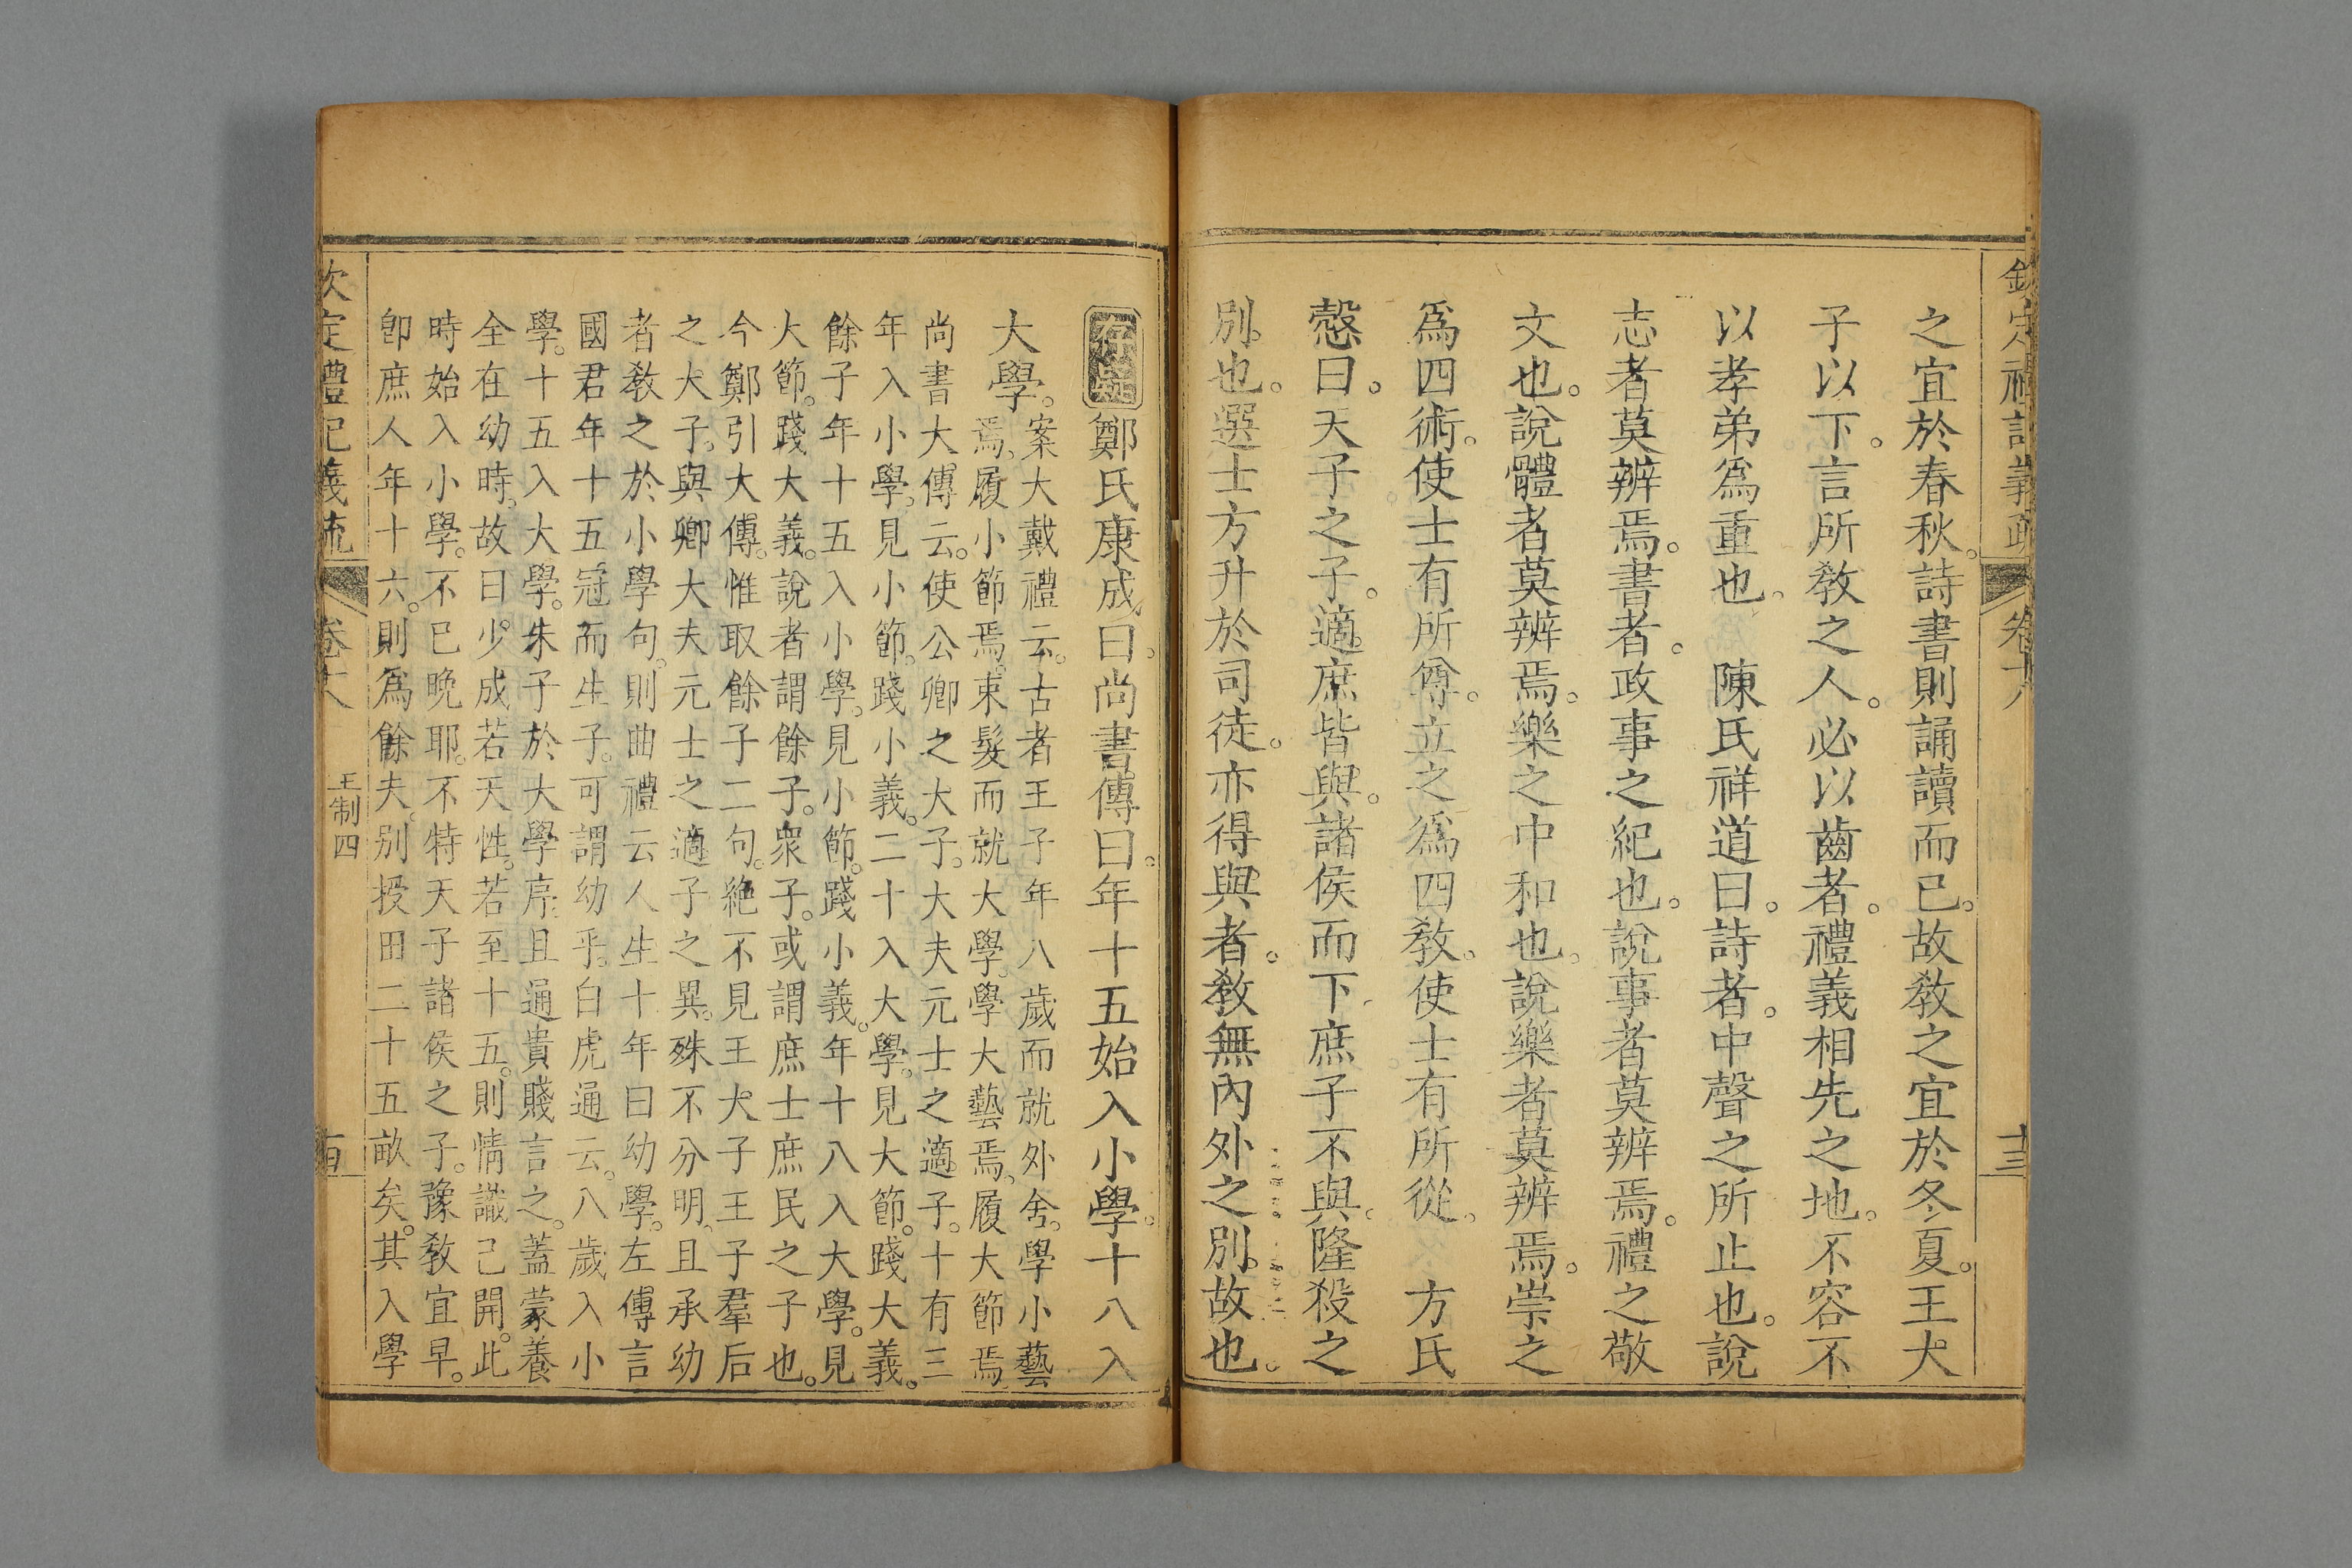 欽定禮記義疏 卷十八 十三
之宜於春秋。詩書則誦讀而已。故敎之宜於冬夏。王大
子以下。言所敎之人。必以齒者。禮義相先之地。不容不
以孝弟爲重也。 陳氏祥道曰。詩者。中聲之所止也。說
志者莫辨焉。書者。政事之紀也。說事者莫辨焉。禮之敬
文也。說體者莫辨焉。樂之中和也。說樂者莫辨焉。崇之
爲四術。使士有所尊。立之爲四敎。使士有所從。 方氏
慤曰。天子之子。適庶皆與。諸侯而下。庶子不與。隆殺之
別也。選士方升於司徒。亦得與者。敎無內外之別。故也。
存疑 鄭氏康成曰。尚書傳曰。年十五始入小學。十八入
大學。案大戴禮云。古者王子年八歲而就外舍。學小藝
焉。履小節焉。束髮而就大學。學大藝焉。履大節焉。
尚書大傳云。使公卿之大子。大夫元士之適子。十有三
年入小學。見小節。踐小義。二十入大學。見大節。踐大義。
餘子年十五入小學。見小節。踐小義。年十八入大學。見
大節。踐大義。說者謂餘子。衆子。或謂庶士庶民之子也。
今鄭引大傳。惟取餘子二句。絶不見王大子王子羣后
之大子。與卿大夫元士之適子之異。殊不分明。且承幼
者敎之於小學句。則曲禮云人生十年曰幼學。左傳言
國君年十五冠而生子。可謂幼乎。白虎通云。八歲入小
學。十五入大學。朱子於大學序。且通貴賤言之。蓋蒙養
全在幼時。故曰少成若天性。若至十五。則情識已開。此
時始入小學。不已晚耶。不特天子諸侯之子。豫敎宜早。
卽庶人年十六。則爲餘夫。別授田二十五畝矣。其入學
欽定禮記義疏 卷十八 王制四